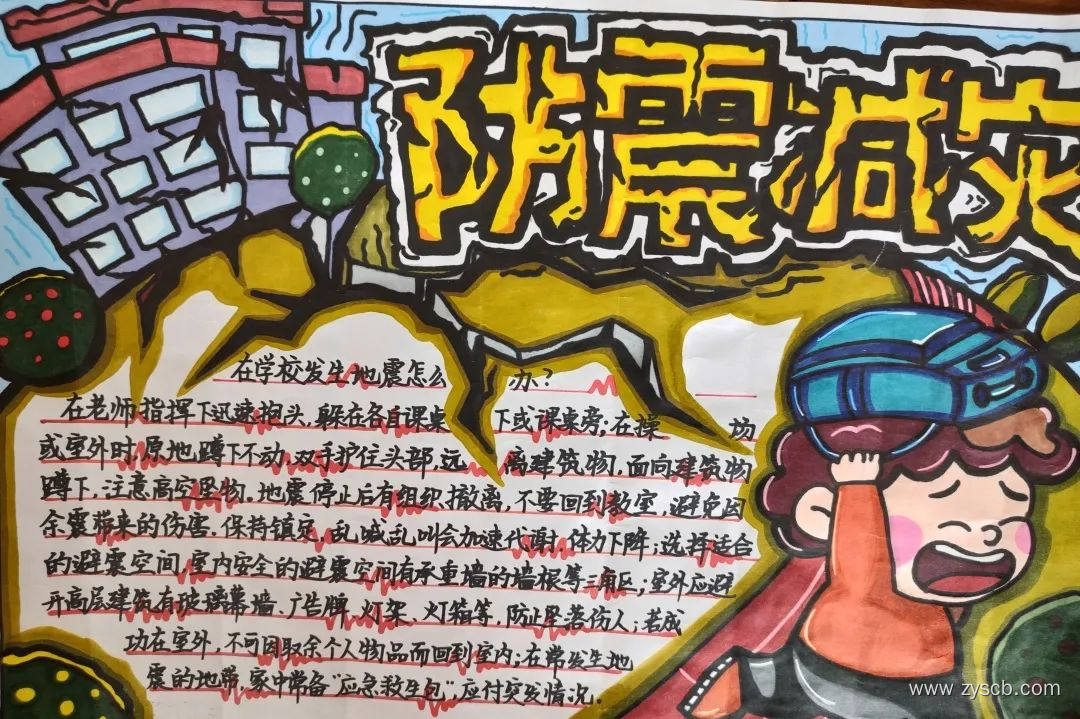 防震减灾
在学校发生地震怎么办？
在老师指挥下迅速抱头，躲在各自课桌下或课桌旁；在操场
或室外时，原地蹲下不动，双手护住头部，远离建筑物，面向建筑物
蹲下，注意高空坠物。地震停止后有组织撤离，不要回到教室，避免因
余震带来的伤害。保持镇定，乱喊乱叫会加速代谢，体力下降；选择适合
的避震空间，室内安全的避震空间有承重墙的墙根等三角区；室外应避
开高层建筑有玻璃幕墙、广告牌、灯架、灯箱等，防止坠落伤人；若成
功在室外，不可因取余个人物品而回到室内；在常发生地
震的地带，家中常备“应急救生包”，应付突发情况。
www.zyscb.com